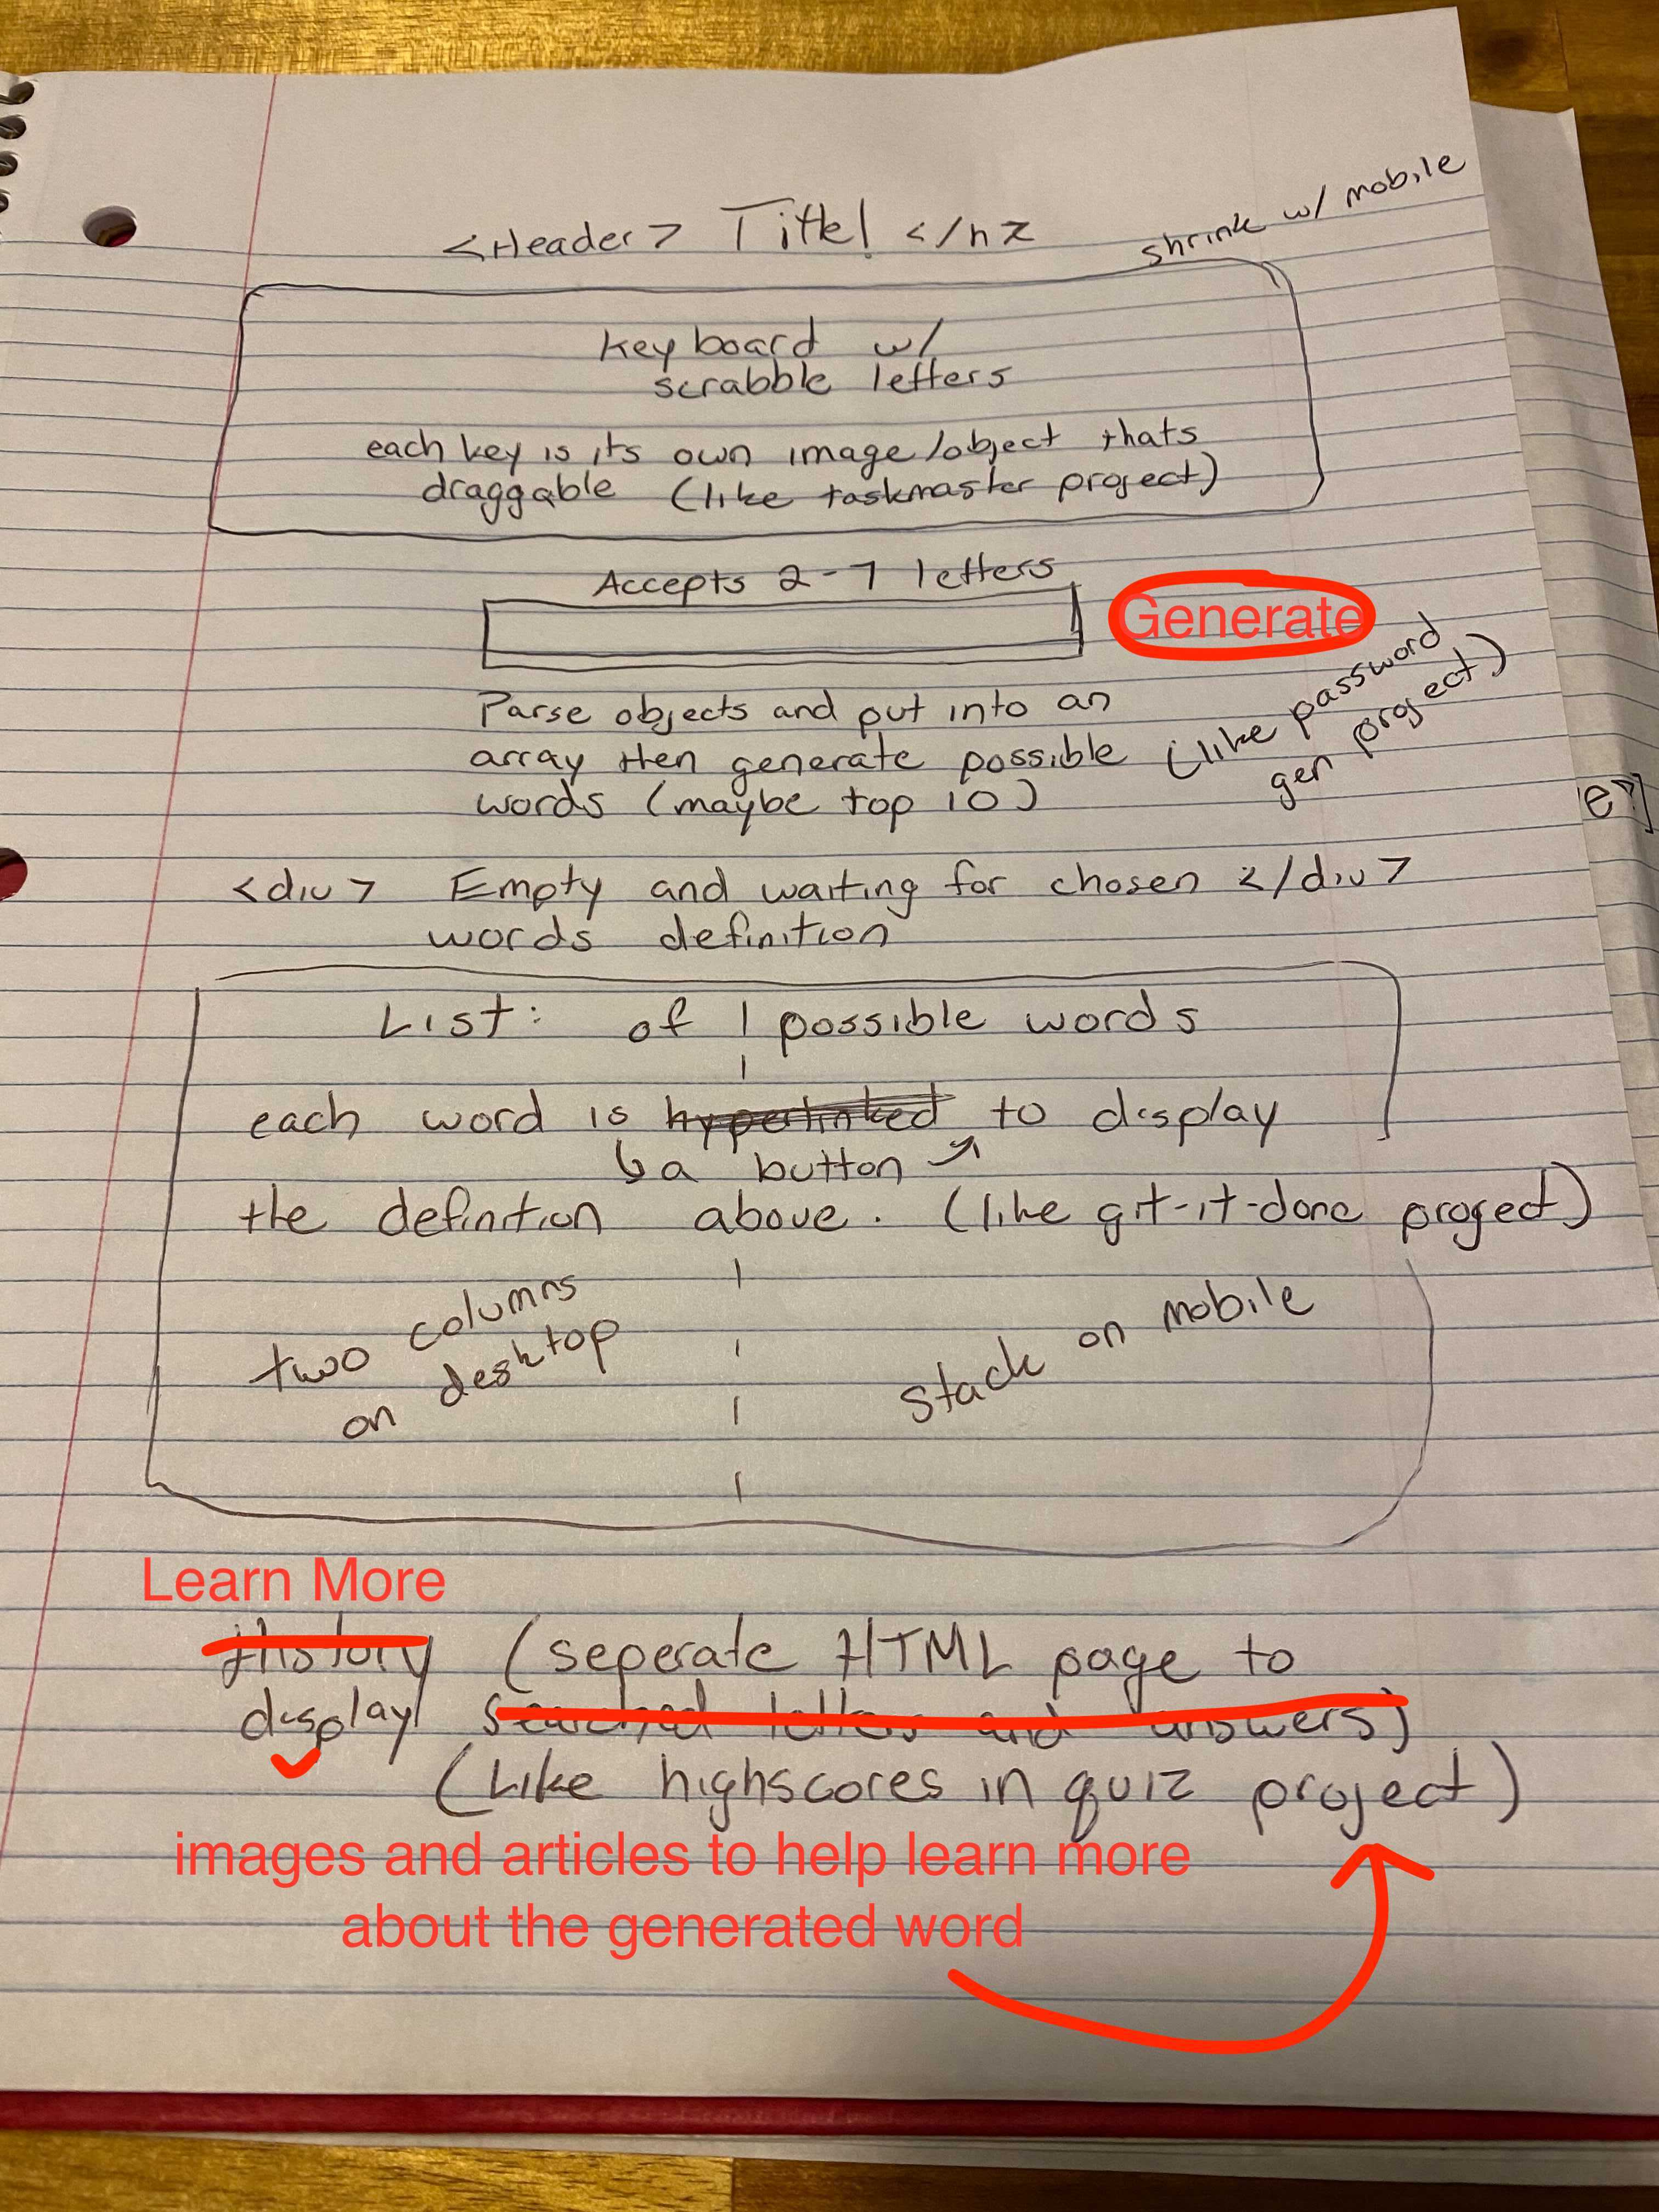 <Header> Title! </hz
shrink w/ mobile
keyboard w/
scrabble letters
each key is its own image/object thats
draggable (like taskmaster project)
Accepts 2-7 letters
Generate
Parse objects and put into an
array then generate possible
words (maybe top 10)
(like password
gen project)
e"]
<div> Empty and waiting for chosen </div>
words definition
List: of possible words
each word is hyperlinked to display
a button
the definition above. (like git-it-done project)
two columns
on desktop
stack on mobile
Learn More
History (seperate HTML page to
display searched letters and answers)
(Like highscores in quiz project)
images and articles to help learn more
about the generated word